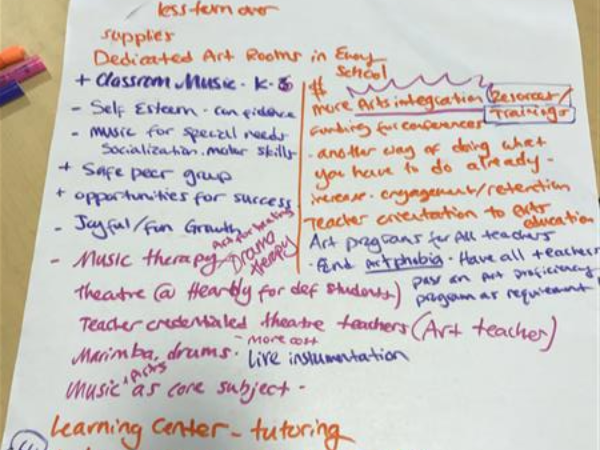 less turn over
supplies
Dedicated Art Rooms in Every School
+ Classrom Music - K-8
- Self Esteem - confidence
- music for special needs
Socialization. motor skills
+ Safe peer group
+ opportunities for success
- Joyful/fun Growth
- Music therapy Art for healing Drama therapy
$
more Arts integration Resorces/
Trainings
funding for conferences
- another way of doing what
you have to do already -
increase - engagement/retention
Teacher orientation to arts
education
Art programs for All teachers
- End Artphobia - Have all teachers
pass an Art proficiency
program as requirement
theatre @ for def students)
Teacher credentialed theatre teachers (Art teacher)
Marimba, drums - more cost
Live instumentation
Music + Arts as core subject -
Learning Center - tutoring